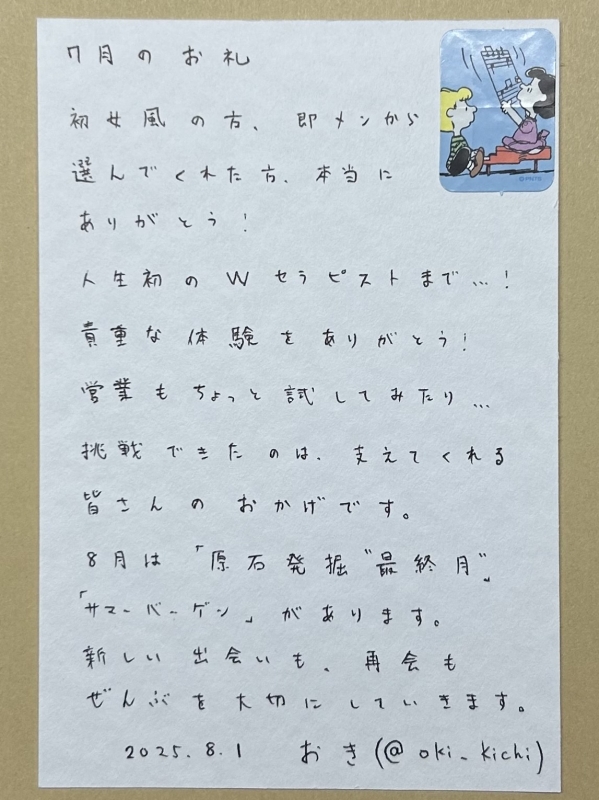 7月のお礼
初女風の方、即メンから
選んでくれた方、本当に
ありがとう!
人生初のWセラピストまで…!
貴重な体験をありがとう!
営業もちょっと試してみたり…
挑戦できたのは、支えてくれる
皆さんのおかげです。
8月は「原石発掘"最終月"」
「サマーバーゲン」があります。
新しい出会いも、再会も
ぜんぶを大切にしていきます。
2025.8.1 おき(@oki_kichi)
©PNTS